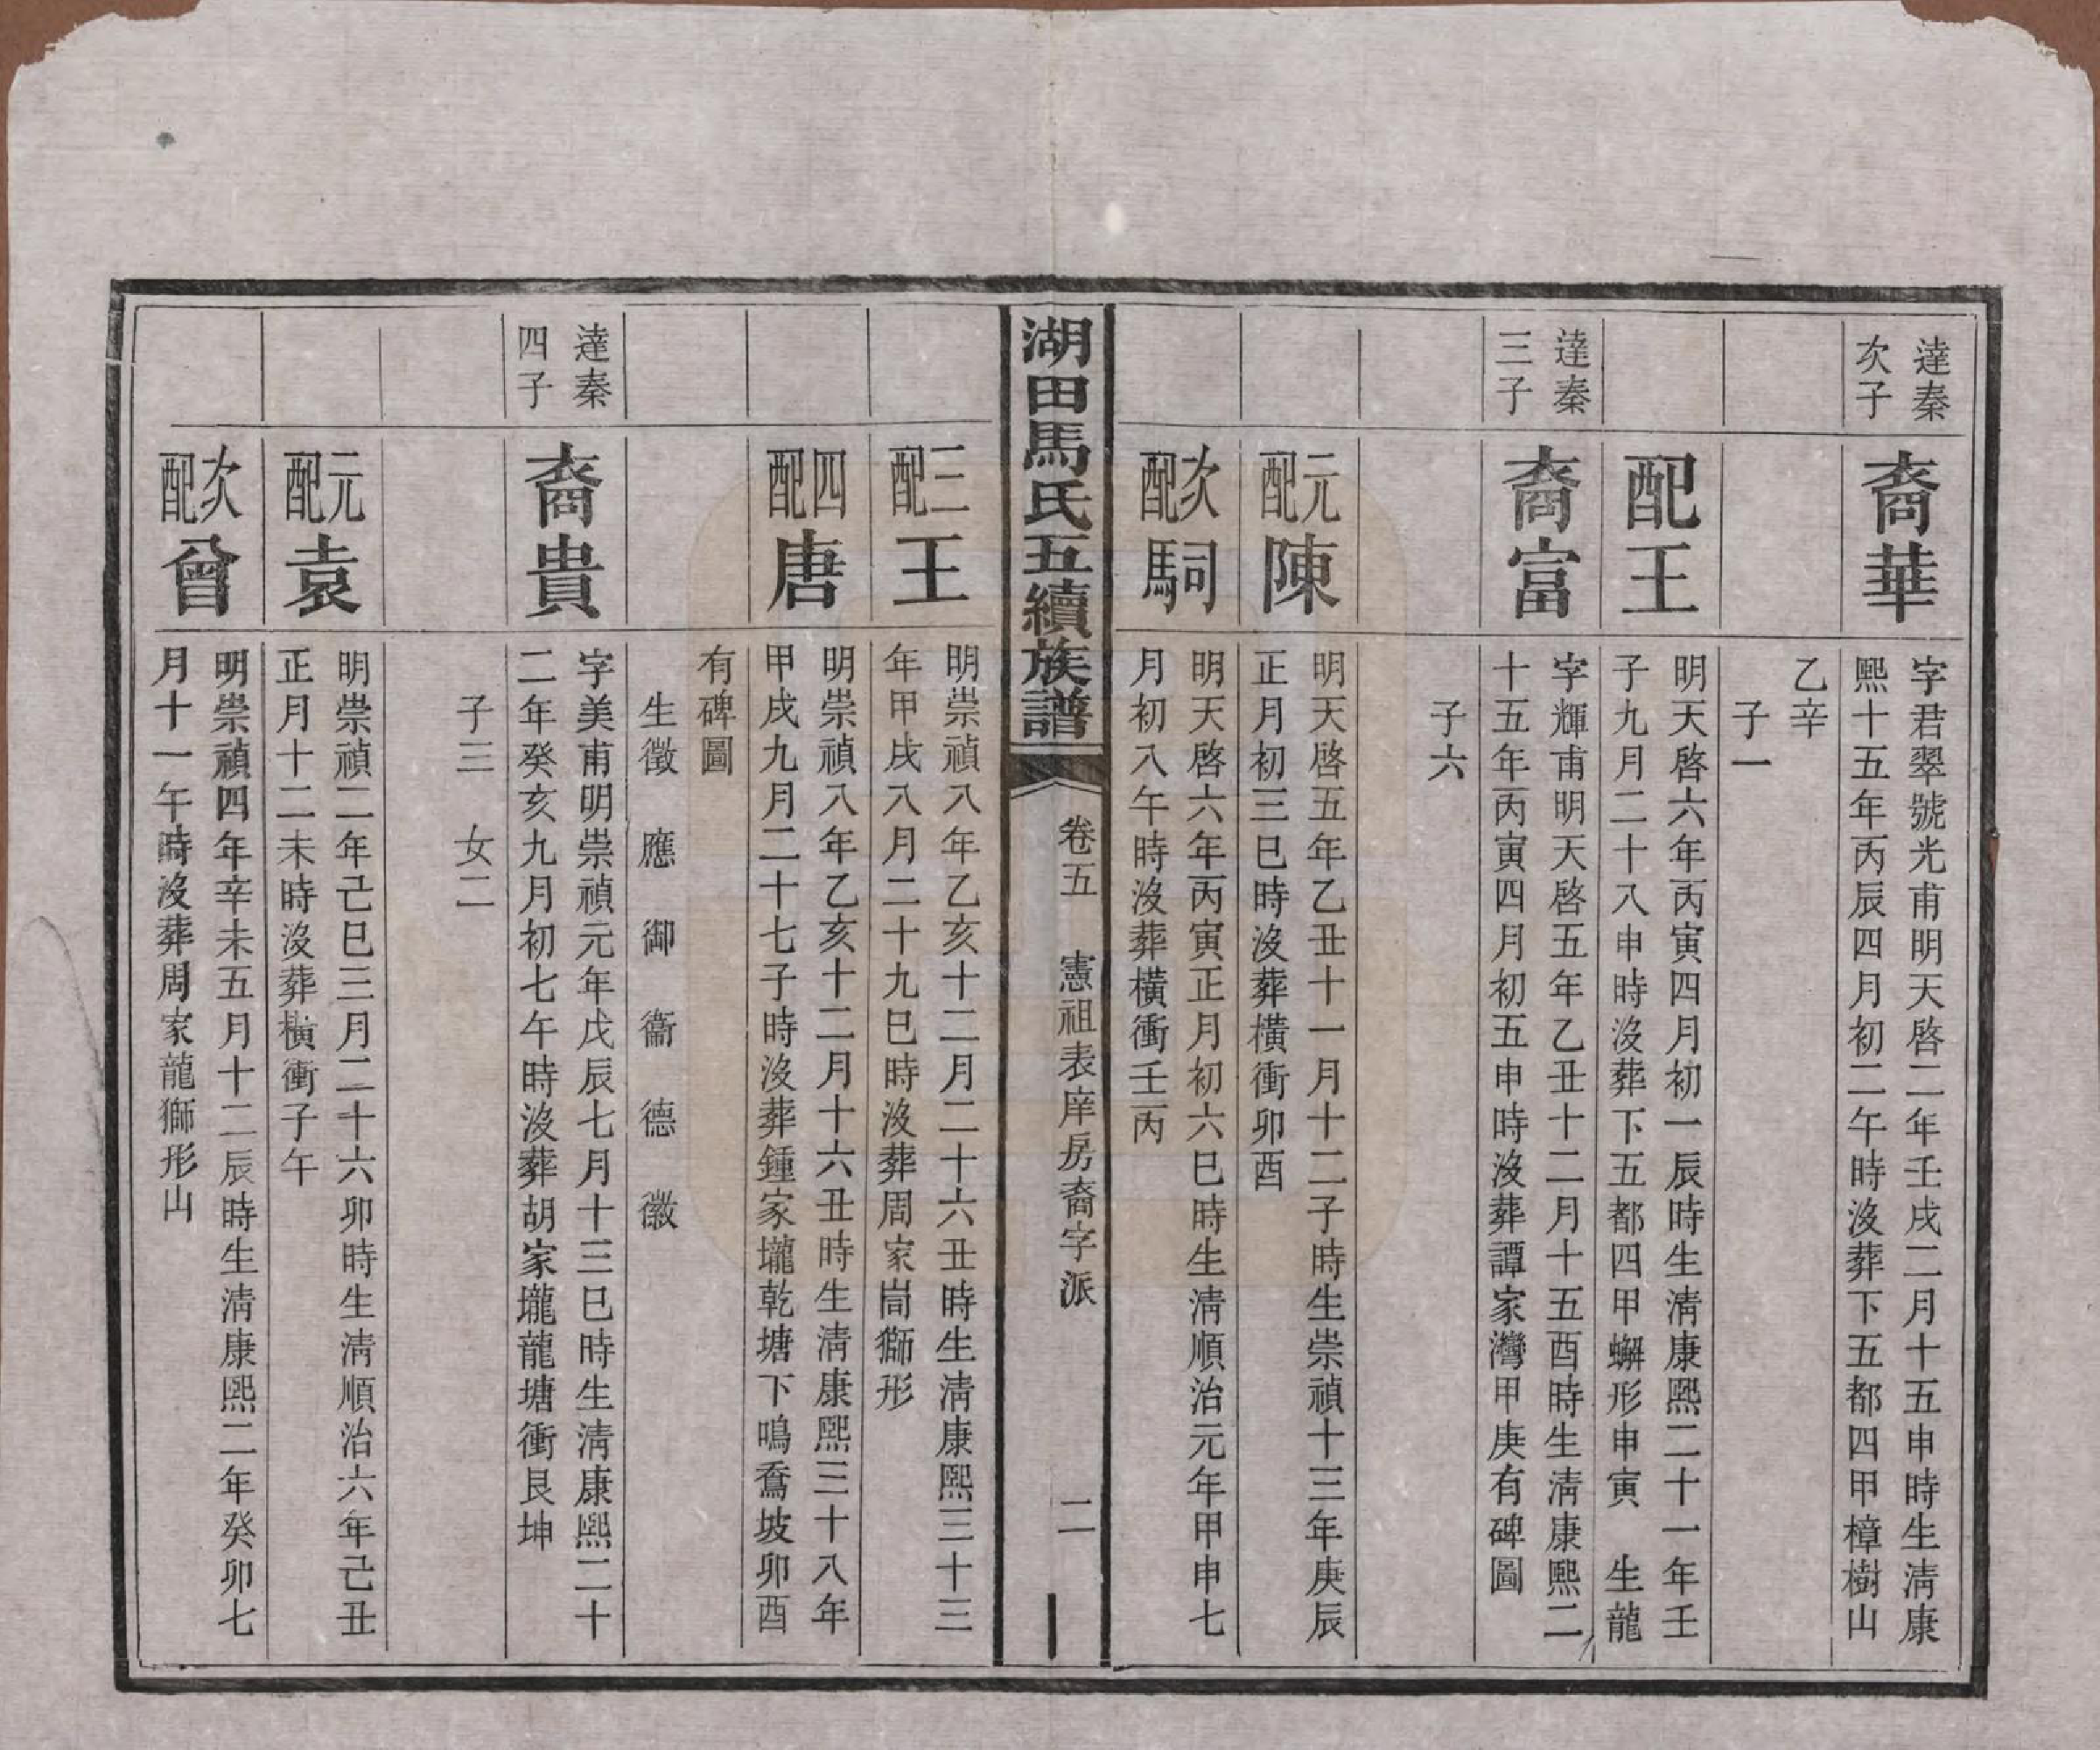 達秦
次子
裔華
字君翠號光甫明天啓二年壬戌二月十五申時生淸康
熙十五年丙辰四月初二午時沒葬下五都四甲樟樹山
乙辛
子一
配王
明天啓六年丙寅四月初一辰時生淸康熙二十一年壬
子九月二十八申時沒葬下五都四甲蠏形申寅 生龍
達秦
三子
裔富
字輝甫明天啓五年乙丑十二月十五酉時生淸康熙二
十五年丙寅四月初五申時沒葬譚家灣甲庚有碑圖
子六
元配
陳
明天啓五年乙丑十一月十二子時生崇禎十三年庚辰
正月初三巳時沒葬橫衝卯酉
次配
駉
明天啓六年丙寅正月初六巳時生淸順治元年甲申七
月初八午時沒葬橫衝壬丙
湖田馬氏五續族譜
卷五 憲祖表庠房裔字派
二
三配
王
明崇禎八年乙亥十二月二十六丑時生淸康熙三十三
年甲戌八月二十九巳時沒葬周家峝獅形
四配
唐
明崇禎八年乙亥十二月十六丑時生淸康熙三十八年
甲戌九月二十七子時沒葬鍾家壠乾塘下鳴鴌坡卯酉
有碑圖
生徵 應 御 衞 德 徽
達秦
四子
裔貴
字美甫明崇禎元年戊辰七月十三巳時生淸康熙二十
二年癸亥九月初七午時沒葬胡家壠龍塘衝艮坤
子三 女二
元配
袁
明崇禎二年己巳三月二十六卯時生淸順治六年己丑
正月十二未時沒葬橫衝子午
次配
曾
明崇禎四年辛未五月十二辰時生淸康熙二年癸卯七
月十一午時沒葬周家龍獅形山